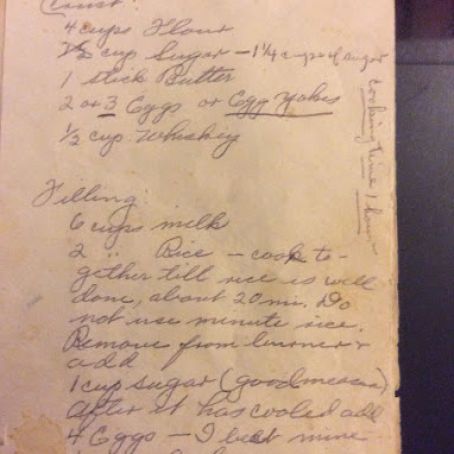 Crust:
4 cups Flour
1/2 cup Sugar – 1 1/4 cups of sugar
1 stick Butter
2 or 3 Eggs or Egg Yokes
1/2 cup Whiskey
cooking time 1 hour
Filling:
6 cups milk
2 " Rice – cook to-
gether till rice is well
done, about 20 min. Do
not use minute rice.
Remove from burner &
add
1 cup sugar (good measure)
after it has cooled add
4 Eggs – I beat mine